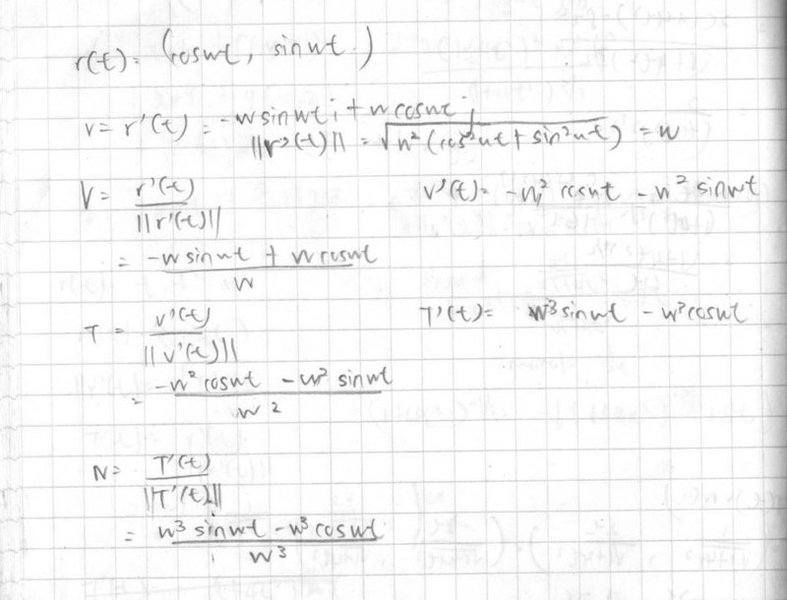 r(t) = (coswt, sinwt)
v = r'(t) = -w sinwt i + w coswt j
||r'(t)|| = √w²(cos²wt + sin²wt) = w
V = r'(t) / ||r'(t)||
v'(t) = -w² coswt - w² sinwt
= -w sinwt + w coswt / w
T = v'(t) / ||v'(t)||
T'(t) = w³ sinwt - w³ coswt
= -w² coswt - w² sinwt / w²
N = T'(t) / ||T'(t)||
= w³ sinwt - w³ coswt / w³